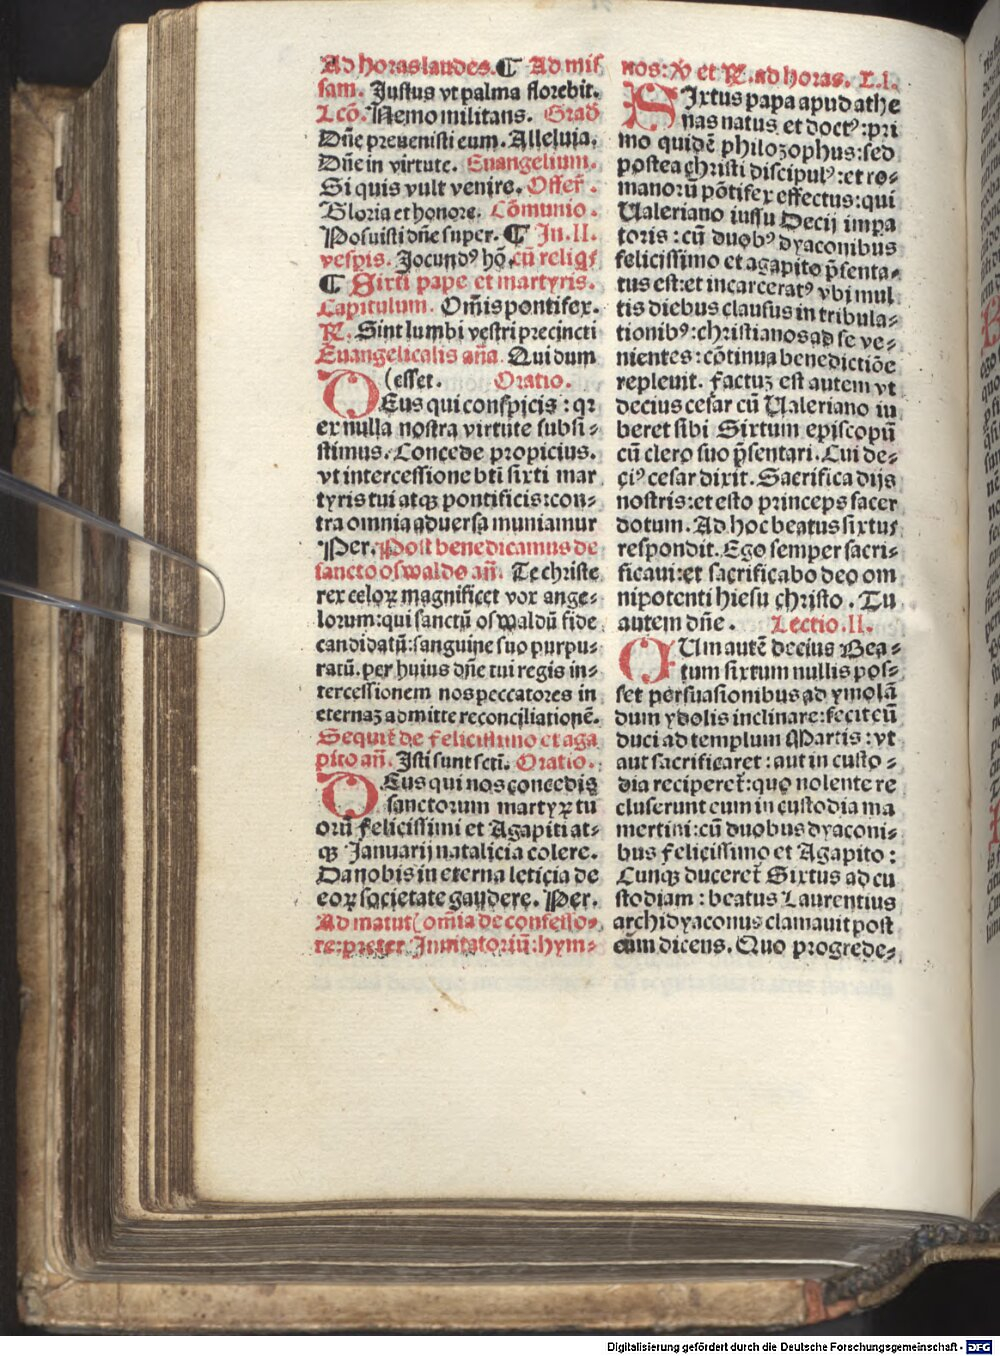 Ad horas laudes. ¶ Ad mis
sam. Justus vt palma florebit.
Lcō. Nemo militans. Grad̄
Dn̄e preuenisti eum. Alleluia.
Dn̄e in virtute. Euangelium.
Si quis vult venire. Offer̄.
Gloria et honore. Cōmunio.
Posuisti dn̄e super. ¶ In. II.
vespis. Jocundꝰ hō. cū reliqs
¶ Sixti pape et martyris.
Capitulum. Om̄is pontifex.
R̄. Sint lumbi vestri precincti
Euangelicalis an̄a. Qui dum
(esset. Oratio.
DEus qui conspicis: qꝛ
ex nulla nostra virtute subsi⸗
stimus. Concede propicius.
vt intercessione bt̄i sixti mar
tyris tui atqꝫ pontificis: con⸗
tra omnia aduersa muniamur
Per. Post benedicamus de
sancto oswaldo an̄. Te christe
rex celoꝝ magnificet vox ange⸗
lorum: qui sanctū oswaldū fide
candidatū: sanguine suo purpu⸗
ratū. per huius dn̄e tui regis in⸗
tercessionem nos peccatores in
eternaꝫ admitte reconciliationē.
Sequit̄ de felicissimo et aga
pito an̄. Isti sunt sct̄i. Oratio.
DEus qui nos concedis
sanctorum martyꝝ tu
orū felicissimi et Agapiti at⸗
qꝫ Januarij natalicia colere.
Da nobis in eterna leticia de
eoꝝ societate gaudere. Per.
Ad matut( om̄ia de confesso⸗
re: preter Inuitatoriū: hym⸗
nos: v̄ et R̄. ad horas. L. I.
SIxtus papa apud athe
nas natus et doctꝰ: pri
mo quidē philozophus: sed
postea christi discipulꝰ: et ro⸗
manorū pōtifex effectus: qui
Ualeriano iussu Decij impa
toris: cū duobꝰ dyaconibus
felicissimo et agapito p̄senta⸗
tus est: et incarceratꝰ vbi mul
tis diebus clausus in tribula⸗
tionibꝰ: christianos ad se ve⸗
nientes: cōtinua benedictiōe
repleuit. factuꝫ est autem vt
decius cesar cū Ualeriano iu
beret sibi Sixtum episcopū
cū clero suo p̄sentari. Cui de⸗
ciꝰ cesar dixit. Sacrifica dijs
nostris: et esto princeps sacer
dotum. Ad hoc beatus sixtus
respondit. Ego semper sacri⸗
ficaui: et sacrificabo deo om
nipotenti hiesu christo. Tu
autem dn̄e. Lectio. II.
CUm autē decius Bea⸗
tum sixtum nullis pos⸗
set persuasionibus ad ymolā
dum ydolis inclinare: fecit eū
duci ad templum Martis: vt
aut sacrificaret: aut in custo⸗
dia reciperet̄: quo nolente re
cluserunt eum in custodia ma
mertini: cū duobus dyaconi⸗
bus felicissimo et Agapito:
Cunqꝫ duceret̄ Sixtus ad cu
stodiam: beatus Laurentius
archidyaconus clamauit post
eum dicens. Quo progrede⸗
Digitalisierung gefördert durch die Deutsche Forschungsgemeinschaft - DFG